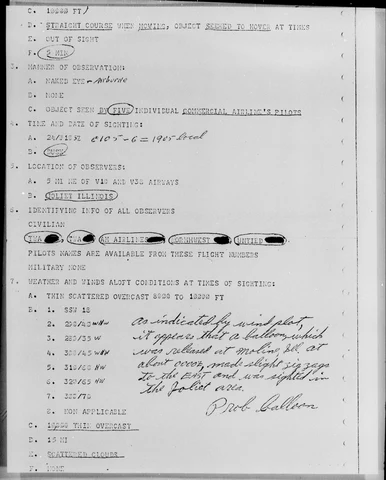 C. 18000 FT)
D. STRAIGHT COURSE WHEN MOVING, OBJECT SEEMED TO HOVER AT TIMES
E. OUT OF SIGHT
F. 2 MIN
3. MANNER OF OBSERVATION:
A. NAKED EYE - Airborne
B. NONE
C. OBJECT SEEN BY FIVE INDIVIDUAL COMMERCIAL AIRLINE'S PILOTS
4. TIME AND DATE OF SIGHTING:
A. 0105-6 = 1905 local
B.
5. LOCATION OF OBSERVERS:
A. 5 MI NE OF V10 AND V38 AIRWAYS
B. JOLIET ILLINOIS
6. IDENTIFYING INFO OF ALL OBSERVERS
CIVILIAN
TWA AM AIRLINES UNITED
PILOTS NAMES ARE AVAILABLE FROM THESE FLIGHT NUMBERS
MILITARY NONE
7. WEATHER AND WINDS ALOFT CONDITIONS AT TIMES OF SIGHTING:
A. THIN SCATTERED OVERCAST TO 18000 FT
B. 1. SSW 15
2.
3.
4.
5.
6.
7.
8. NON APPLICABLE
as indicated by wind plot,
it appears that a balloon which
was released at Moline, Ill. at
about made slight zig zags
to the EAST and was sighted in
the Joliet area.
Prob Balloon
C. THIN OVERCAST
D. 15 MI
E. SCATTERED CLOUDS
F. NONE